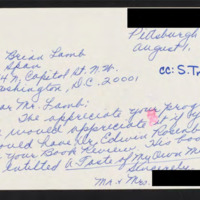 Pittsburgh
August 1,
Brian Lamb
Span
N. Capitol St. N.W.
Washington, D.C. 20001
cc: S.T
Dear Mr. Lamb:
The appreciate your prog
would appreciate it if
would have Mr. Edwin
your Book Review. This boo
entitled A Taste of My Own Me
Sincerely,
Mr. & Mrs.